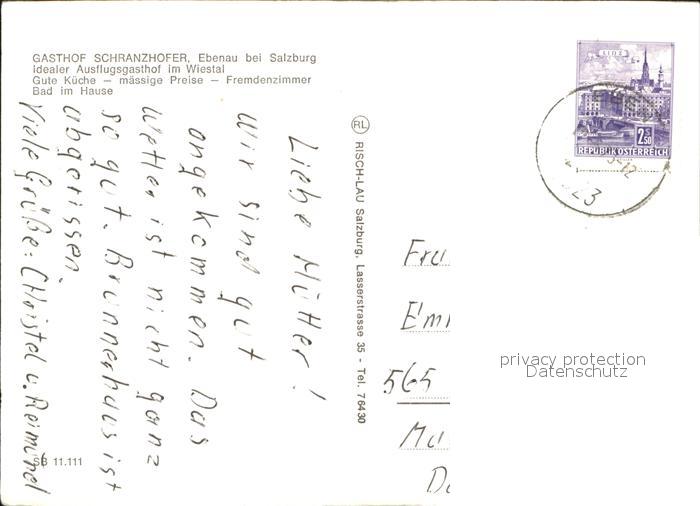 GASTHOF SCHRANZHOFER, Ebenau bei Salzburg
Idealer Ausflugsgasthof im Wiestal
Gute Küche — mässige Preise — Fremdenzimmer
Bad im Hause
Liebe Mutter!
Wir sind gut
angekommen. Das
Wetter ist nicht ganz
so gut. Brunnerhaus ist
abgerissen.
Viele Grüße: Christel u. Reimund
SB 11.111
RL
RISCH-LAU Salzburg, Lasserstrasse 35 - Tel. 76430
LINZ
2 S 50
REPUBLIK ÖSTERREICH
Frau
565
privacy protection
Datenschutz